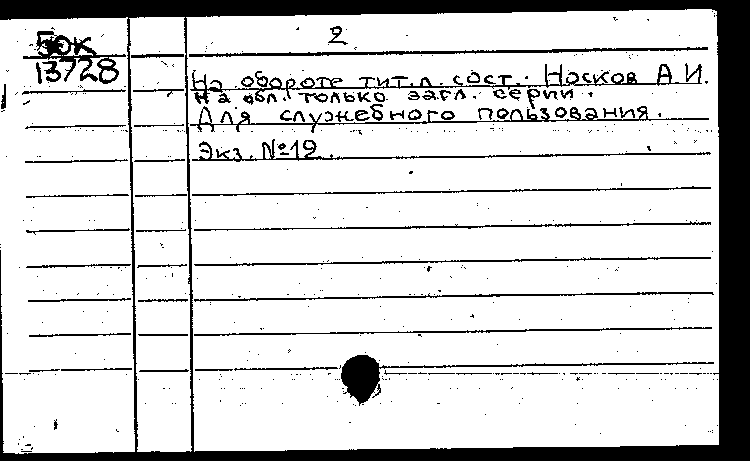 2
50к
13728
На обороте тит.л. сост.: Носков А.И.
На обл. только загл. серии.
Для служебного пользования.
Экз. №12.